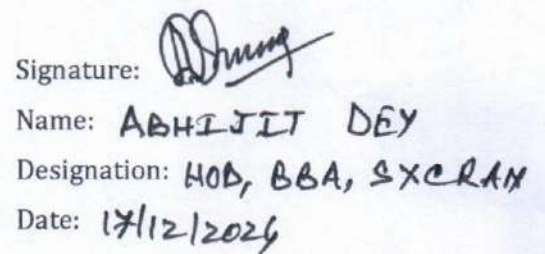 Signature:
Name: ABHIJIT DEY
Designation: HOD, BBA, SXCRAN
Date: 17/12/2024